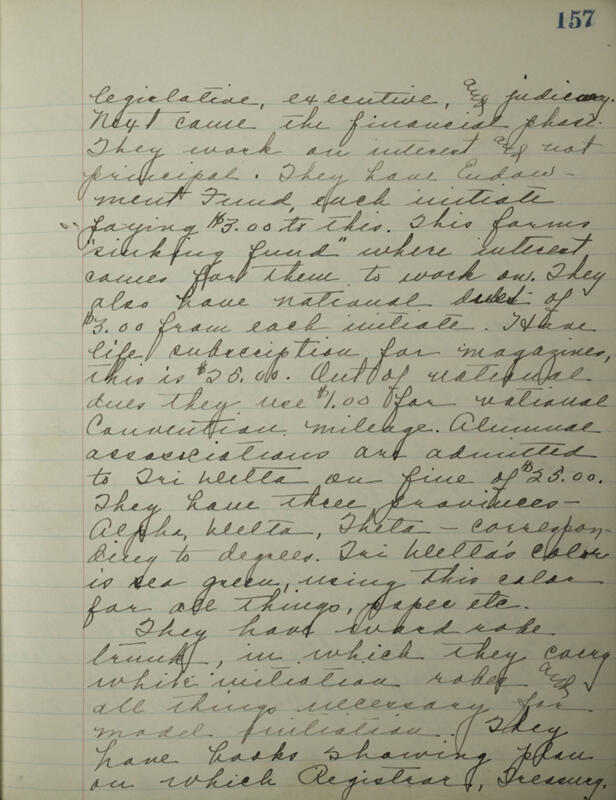 157
legislative, executive, and judicary.
Next came the financial phase.
They work on interest and not
principal. They have Endow-
ment Fund, each initiate
paying $3.00 to this. This forms
"sinking fund" where interest
comes for them to work on. They
also have national dues of
$3.00 from each initiate. Have
life subscription for magazines,
this is $25.00. Out of national
dues they use $1.00 for national
Convention mileage. Alumnae
associations are admitted
to Tri Delta on fine of $25.00.
They have three provinces -
Alpha, Delta, Theta - correspon-
ding to degrees. Tri Delta's color
is sea green, using this color
for all things, paper etc.
They have ward robe
trunk, in which they carry
white initiation robes and
all things necessary for
model initiation. They
have books showing plan
on which Registrar, Treasury,